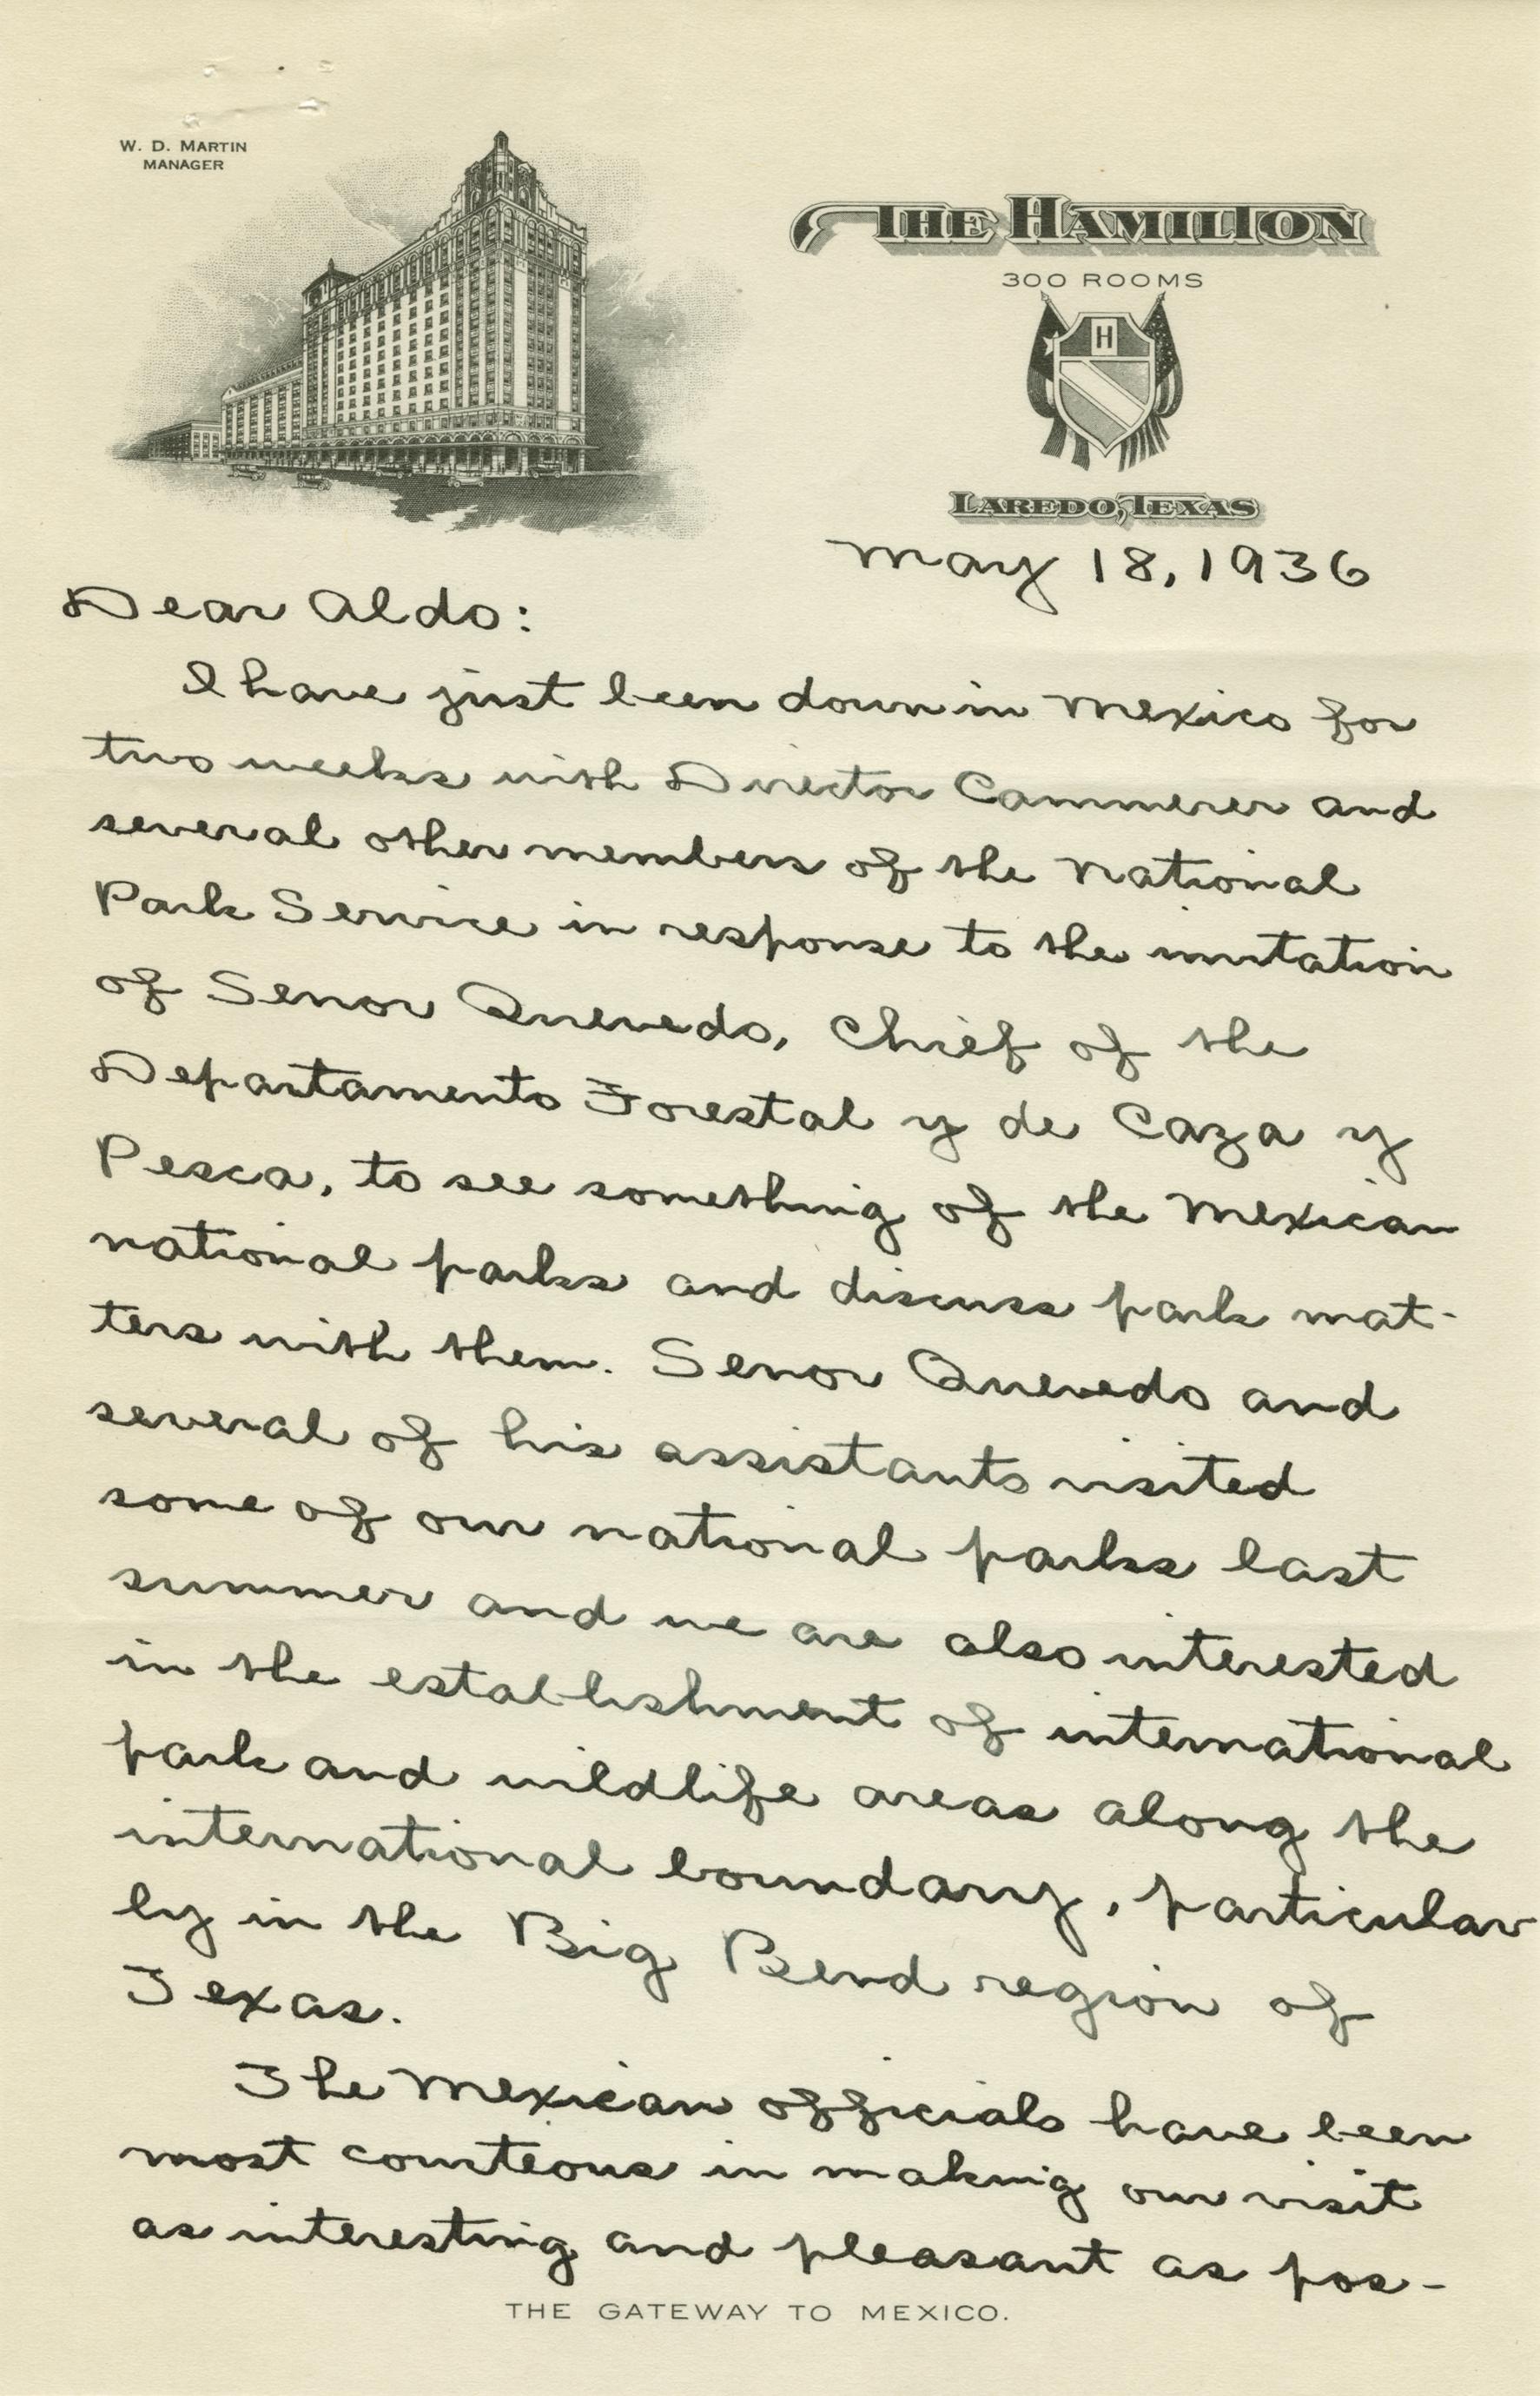 W. D. MARTIN
MANAGER
THE HAMILTON
300 ROOMS
H
LAREDO, TEXAS
May 18, 1936
Dear Aldo:
I have just been down in Mexico for
two weeks with Director Cammerer and
several other members of the National
Park Service in response to the invitation
of Senor Quevedo, Chief of the
Departamento Forestal y de Caza y
Pesca, to see something of the Mexican
national parks and discuss park mat-
ters with them. Senor Quevedo and
several of his assistants visited
some of our national parks last
summer and we are also interested
in the establishment of international
park and wildlife areas along the
international boundary, particular
ly in the Big Bend region of
Texas.
The Mexican officials have been
most courteous in making our visit
as interesting and pleasant as pos-
THE GATEWAY TO MEXICO.